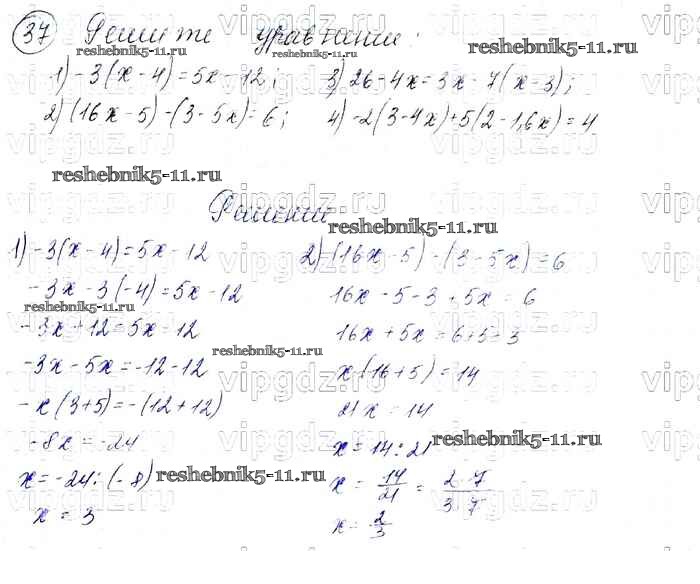 37 Решите уравнения:
1) -3(x-4)=5x-12; 3) 26-4x=3x-7(x-3);
2) (16x-5)-(3-5x)=6; 4) -2(3-4x)+5(2-1,6x)=4
Решение
1) -3(x-4)=5x-12
-3x-3(-4)=5x-12
-3x+12=5x-12
-3x-5x=-12-12
-x(3+5)=-(12+12)
-8x=-24
x=-24:(-8)
x=3
2) (16x-5)-(3-5x)=6
16x-5-3+5x=6
16x+5x=6+5+3
x(16+5)=14
21x=14
x=14:21
x=14/21=2·7/3·7
x=2/3
reshebnik5-11.ru
reshebnik5-11.ru
reshebnik5-11.ru
reshebnik5-11.ru
reshebnik5-11.ru
reshebnik5-11.ru
reshebnik5-11.ru
reshebnik5-11.ru
vipgdz.ru